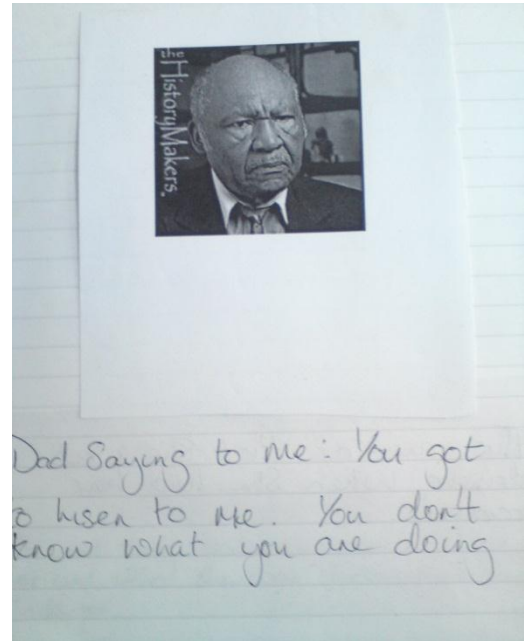 the
HistoryMakers.
Dad Saying to me: You got
o lisen to me. You don't
know what you are doing